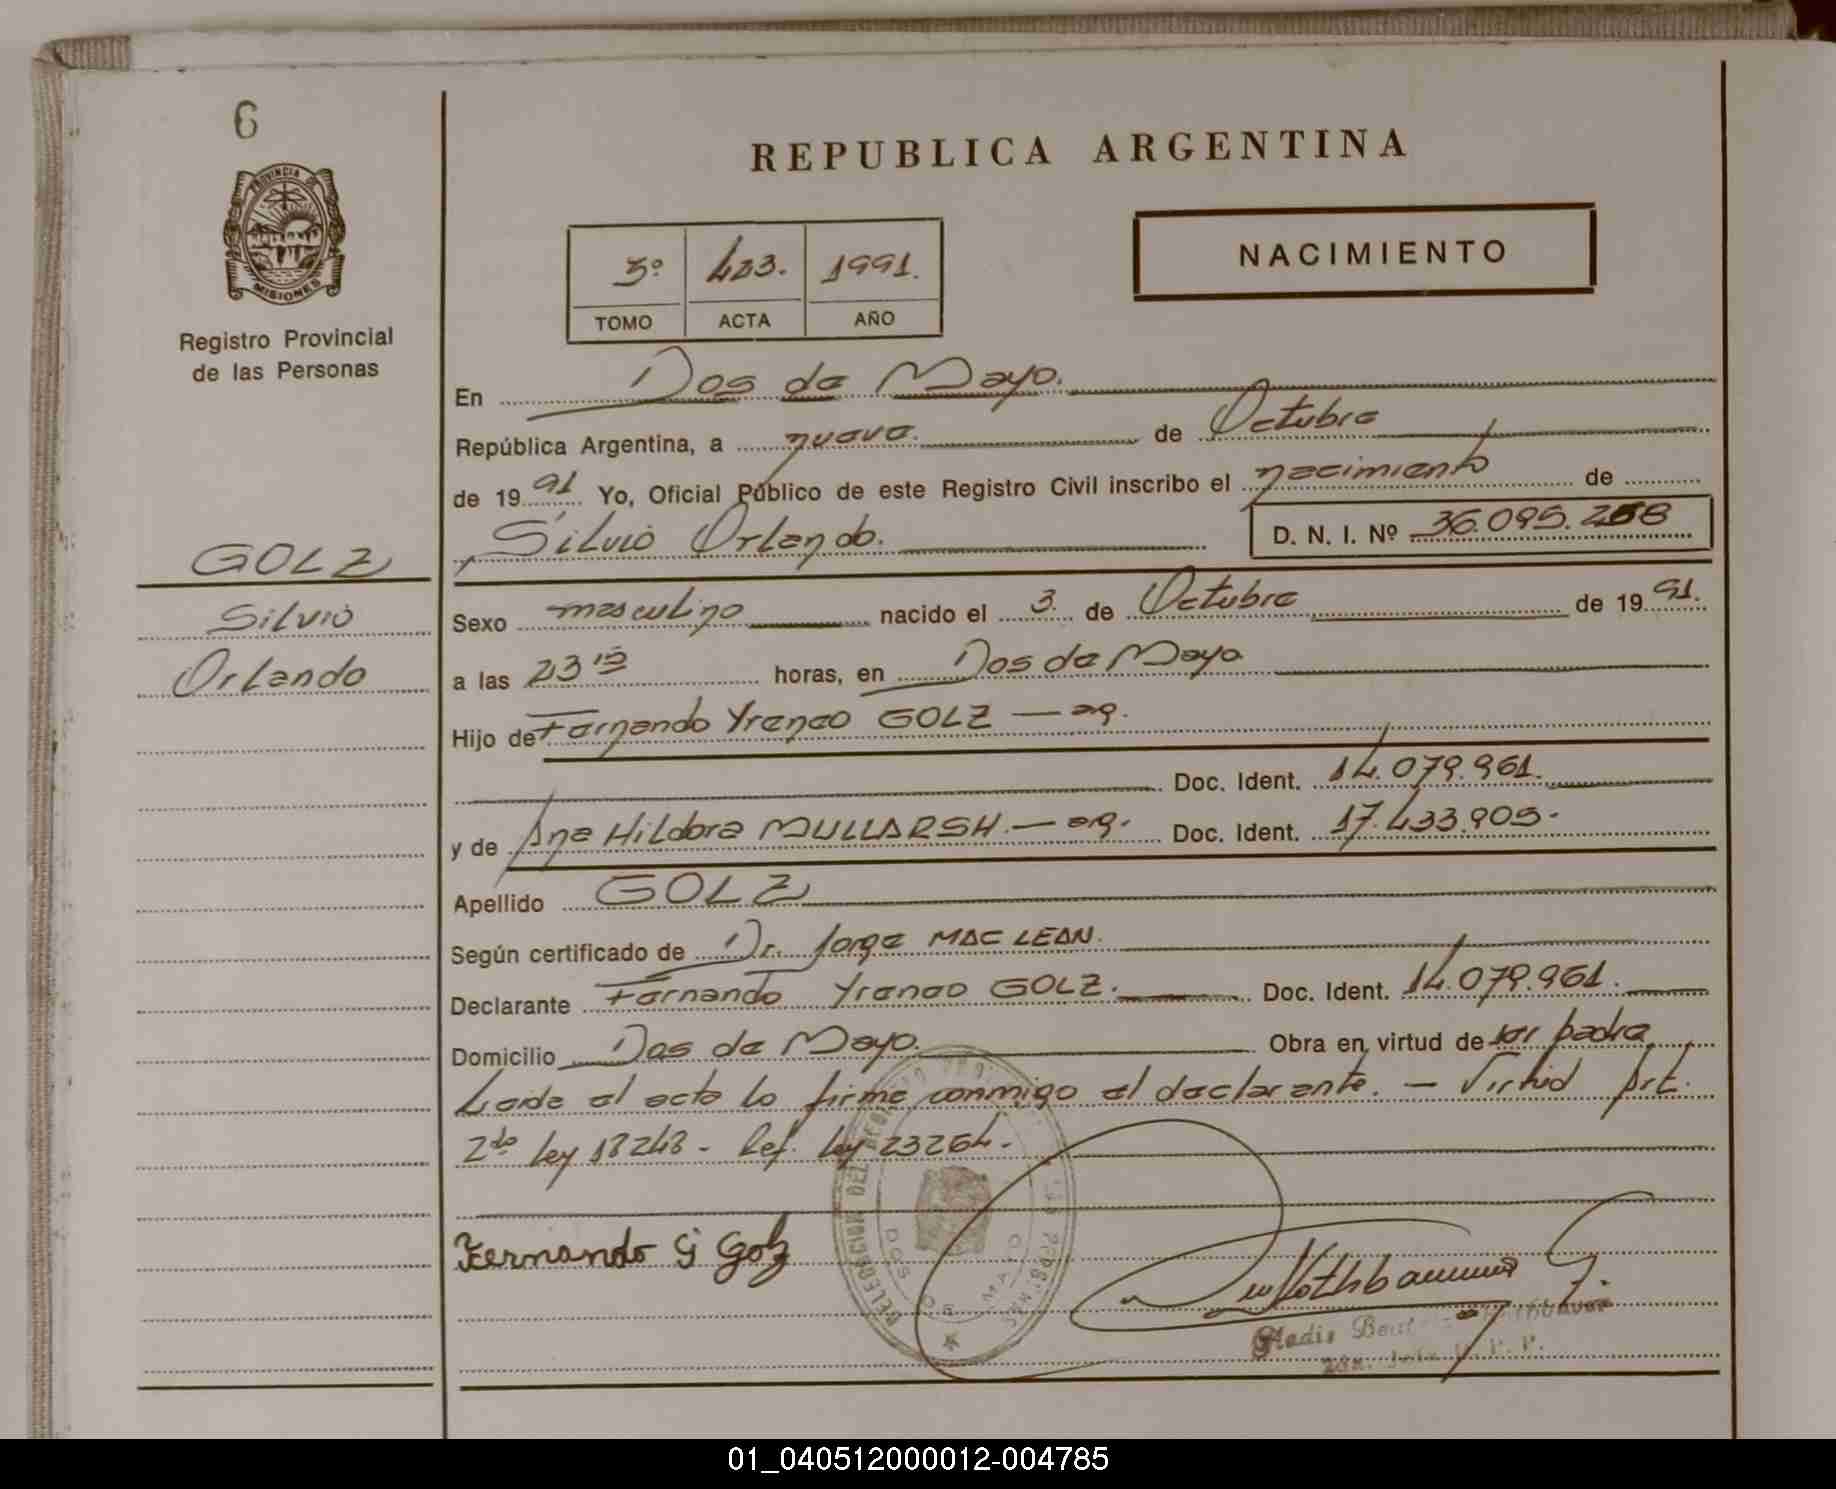 6
REPUBLICA ARGENTINA
PROVINCIA DE
MISIONES
Registro Provincial
de las Personas
3º 423. 1991.
TOMO ACTA AÑO
NACIMIENTO
En Dos de Mayo.
República Argentina, a nueve. de Octubre
de 1991 Yo, Oficial Público de este Registro Civil inscribo el nacimiento de
Silvio Orlando. D. N. I. Nº 36.095.268
GOLZ
Silvio
Orlando
Sexo masculino nacido el 3. de Octubre de 1991.
a las 23 15 horas, en Dos de Mayo
Hijo de Fernando Yreneo GOLZ — arg.
Doc. Ident. 14.079.961.
y de Ana Hildora MULLARSH. — arg. Doc. Ident. 17.433.905.
Apellido GOLZ
Según certificado de Dr. Jorge MAC LEAN.
Declarante Fernando Yreneo GOLZ. Doc. Ident. 14.079.961.
Domicilio Dos de Mayo. Obra en virtud de ser padre
Leida el acta lo firma conmigo el declarante. — Virtud Art.
2do ley 18248 - Ref. ley 23264.
Fernando Golz
DOS DE MAYO
Gladis
01_040512000012-004785